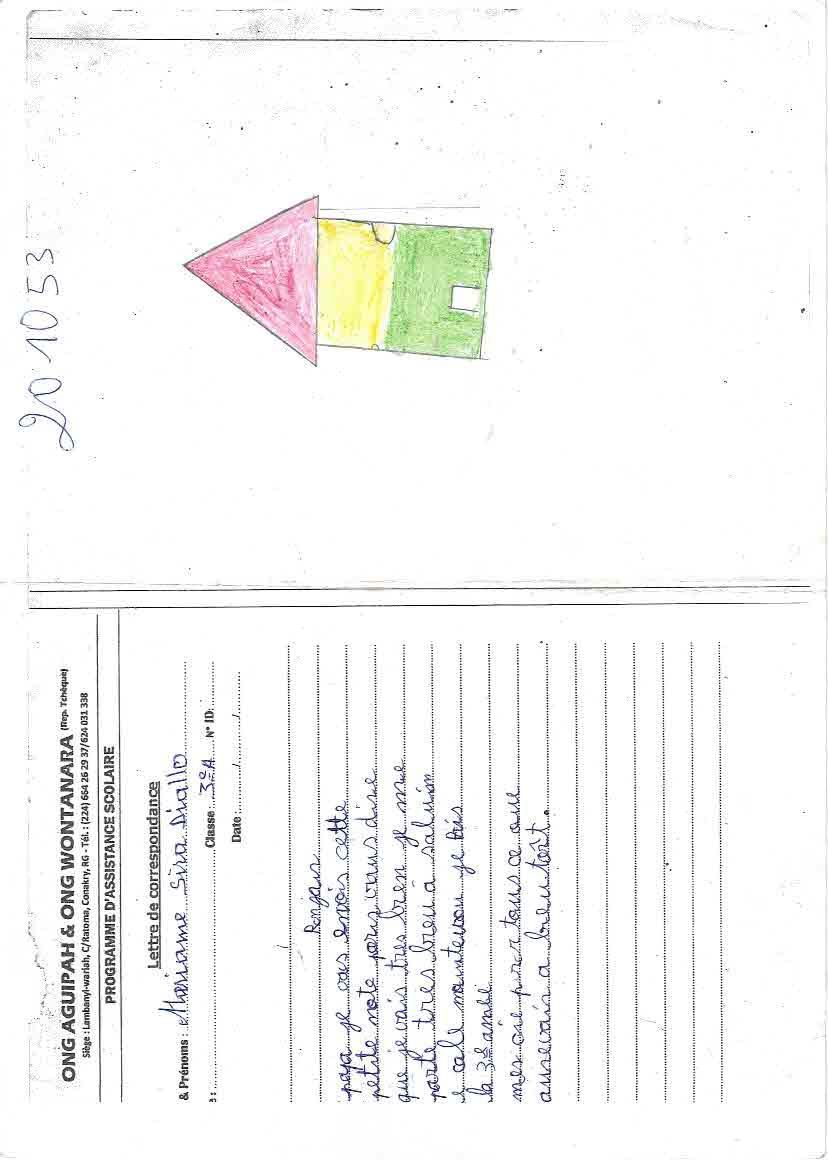 20 1053
ONG AGUIPAH & ONG WONTANARA (Rep. Tchèque)
Siège : Lambanyi-wariah, C/Ratoma, Conakry, RG - Tél. : (224) 664 26 29 37/624 031 338
PROGRAMME D'ASSISTANCE SCOLAIRE
Lettre de correspondance
& Prénoms : Mariame Sira Diallo
: Classe : 3e A N° ID:
Date : / /
Bonjour
papa je vous envois cette
petite note pour vous dire
que je vais tres bien je me
porte tres bien à salu
e cole maintenon je suis
la 3e année
mes pour tous ce que
a bien tôt.